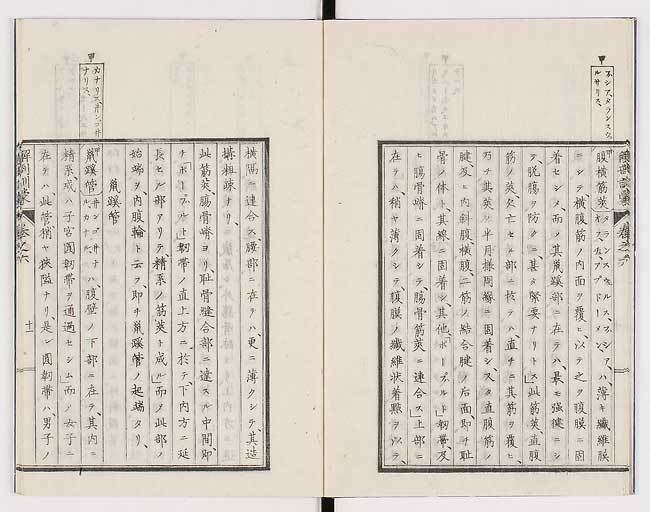 ハシア、タランスウェ
ルサリス
腹横筋莢 タランスウェルス、ハシア、イス、アブドーメン ハ、薄キ纖維膜
ニシテ横腹筋ノ内面ヲ覆ヒ以テ之ヲ腹膜ニ固
着セシメ、而ノ其鼠蹊部ニ在テハ最モ強健ニシ
テ、脱腸ヲ防クニ甚タ緊要ナリトス、此筋莢直腹
筋ノ莢欠亡セル部ニ於テハ、直チニ其筋ヲ覆ヒ、
乃チ其莢ノ半月様周縁ニ固着シ、又タ直腹筋ノ
腱及ヒ内斜腹、横腹二筋ノ結合腱ノ后面即チ耻
骨ノ体ト其線ニ固着シ其他「ポープルト」韌帯及
ヒ腸骨嵴ニ固着シテ腸骨筋莢ニ連合ス、上部ニ
在テハ、稍ヤ薄クシテ腹膜ノ纖維状着點ヲ以テ、
横隔ニ連合ス腰部ニ在テハ、更ニ薄クシテ其造
構粗疎ナリ、
此筋莢、腸骨嵴ヨリ、耻骨縫合部ニ達スル中間、即
チ「ポープルト」韌帯ノ直上方ニ於テ、下内方ニ延
長セル部アリテ、精系ノ筋莢ト成ル、而ノ此部ノ
始端ヲ、内腹輪ト云ヲ、即チ鼠蹊管ノ起端タリ、
鼠蹊管
カナリス、インゴイ
ナリス
鼠蹊管 インゴイナルカナル ハ、腹壁ノ下部ニ在テ、其内ニ
精系、或ハ子宮圓韌帯ヲ通過セシム、而ノ女子ニ
在テハ、此管稍ヤ狹隘ナリ、是レ圓韌帯ハ、男子ノ
解剖訓蒙 巻之六 十一